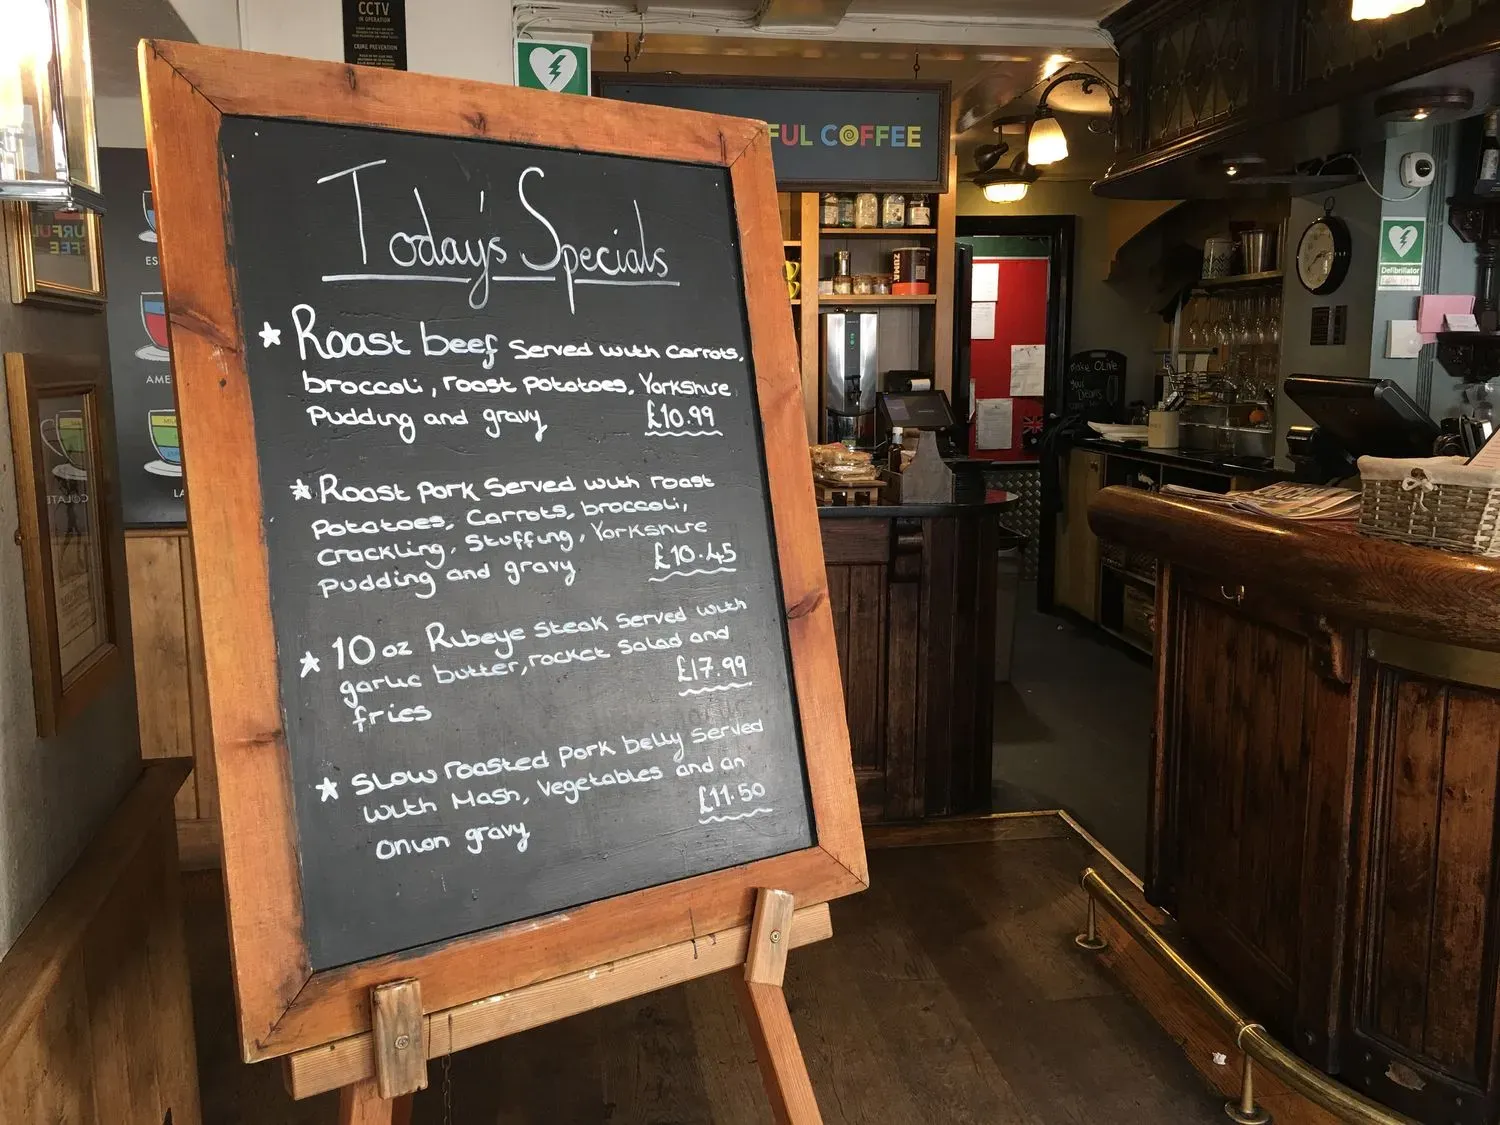 CCTV
IN OPERATION
CRIME PREVENTION
FUL COFFEE
Today's Specials
Roast beef served with carrots,
broccoli, roast potatoes, Yorkshire
Pudding and gravy £10.99
Roast pork served with roast
potatoes, carrots, broccoli,
crackling, stuffing, Yorkshire
pudding and gravy £10.45
10 oz Ribeye steak served with
garlic butter, rocket salad and
fries £17.99
slow roasted pork belly served
with mash, vegetables and an
onion gravy £11.50
ES
AME
LA
ZUMA
make OLive
your
Defibrillator